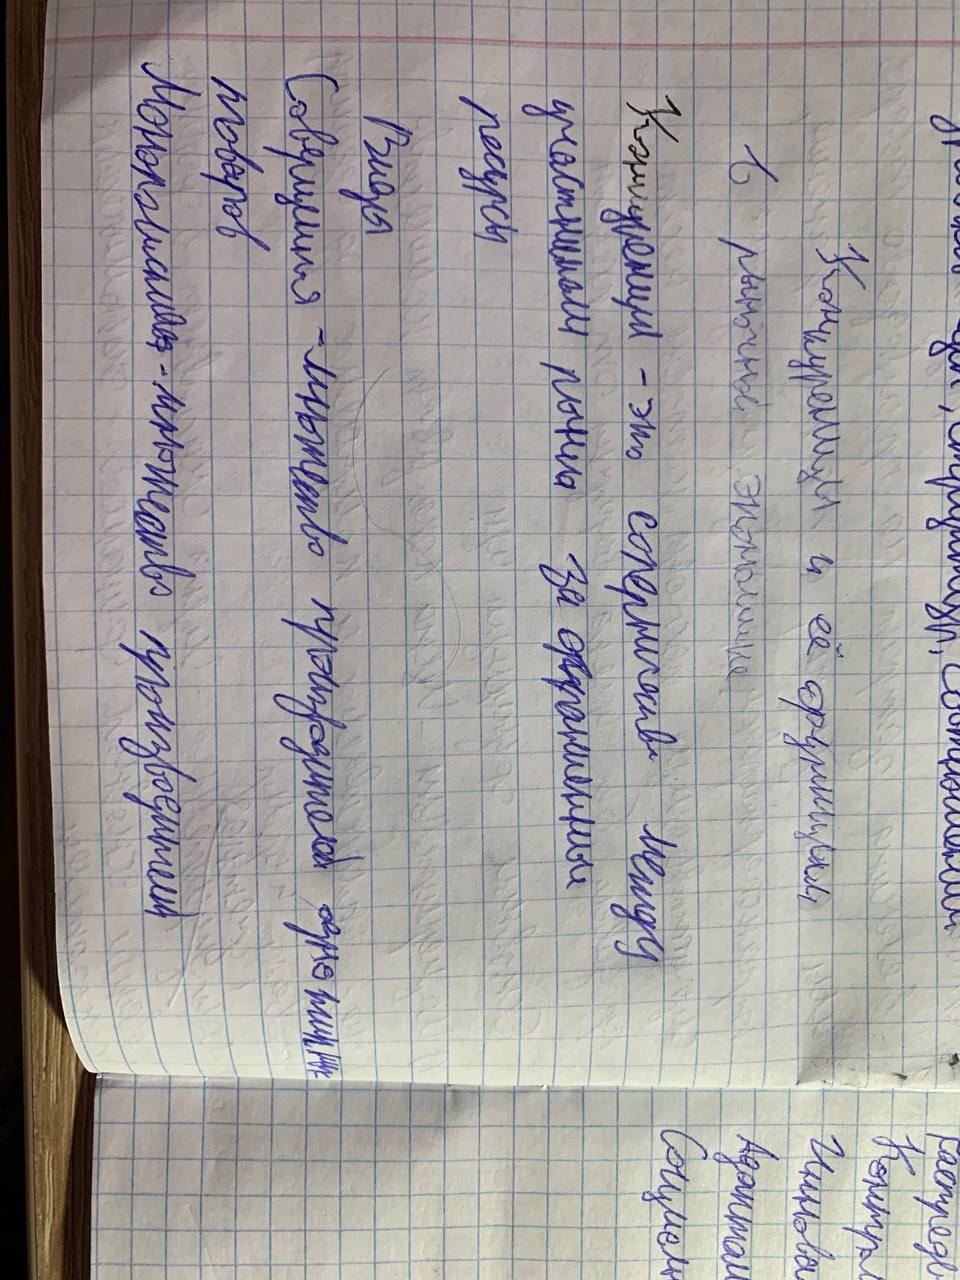 Конкуренция и её функции
в рыночной экономике
Конкуренция - это соперничество между
участниками рынка за ограниченные
ресурсы
Виды
Совершенная - множество производителей однотипных
товаров
Монополистическая - множество производителей
Контрол
Иннова
Адаптац
Социальн